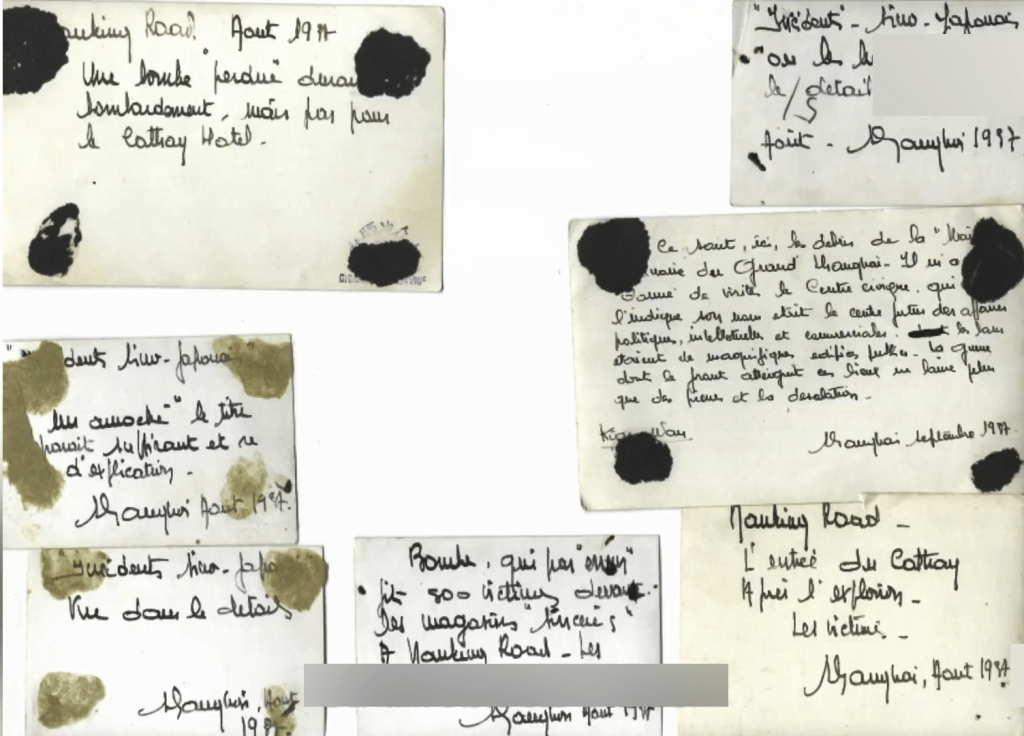 Nanking Road. Août 1937
Une bombe "perdue" durant
bombardement, mais pas pour
le Cathay Hotel.
"Incidents" - Sino-Japonais
"ou les
le détail
Août - Shanghai 1937
Ce sont, ici, les débris de la "Mai
du Grand Shanghai - Il m'a
donné de visiter le Centre civique, qui
l'indique son nom était le centre futur des affaires
politiques, intellectuelles et commerciales.
étaient de magnifiques édifices publics. La guerre
dont le front atteignit ces lieux ne laisse plus
que des pierres et la désolation.
Kiang Wan
Shanghai septembre 1937.
dents Sino-Japonais
"Un amoché" le titre
parait suffisant et
d'explication -
Shanghai Aout 1937.
"Incidents Sino-Japo
Vue dans le détails
Shanghai, Aout
1937.
Bombe, qui par "erreur"
fit 800 victimes devant
les magasins "Sincere's"
A Nanking Road - Les
Shanghai Aout 1937
Nanking Road -
L'entrée du Cathay
Après l'explosion -
Les victimes -
Shanghai, Aout 1937